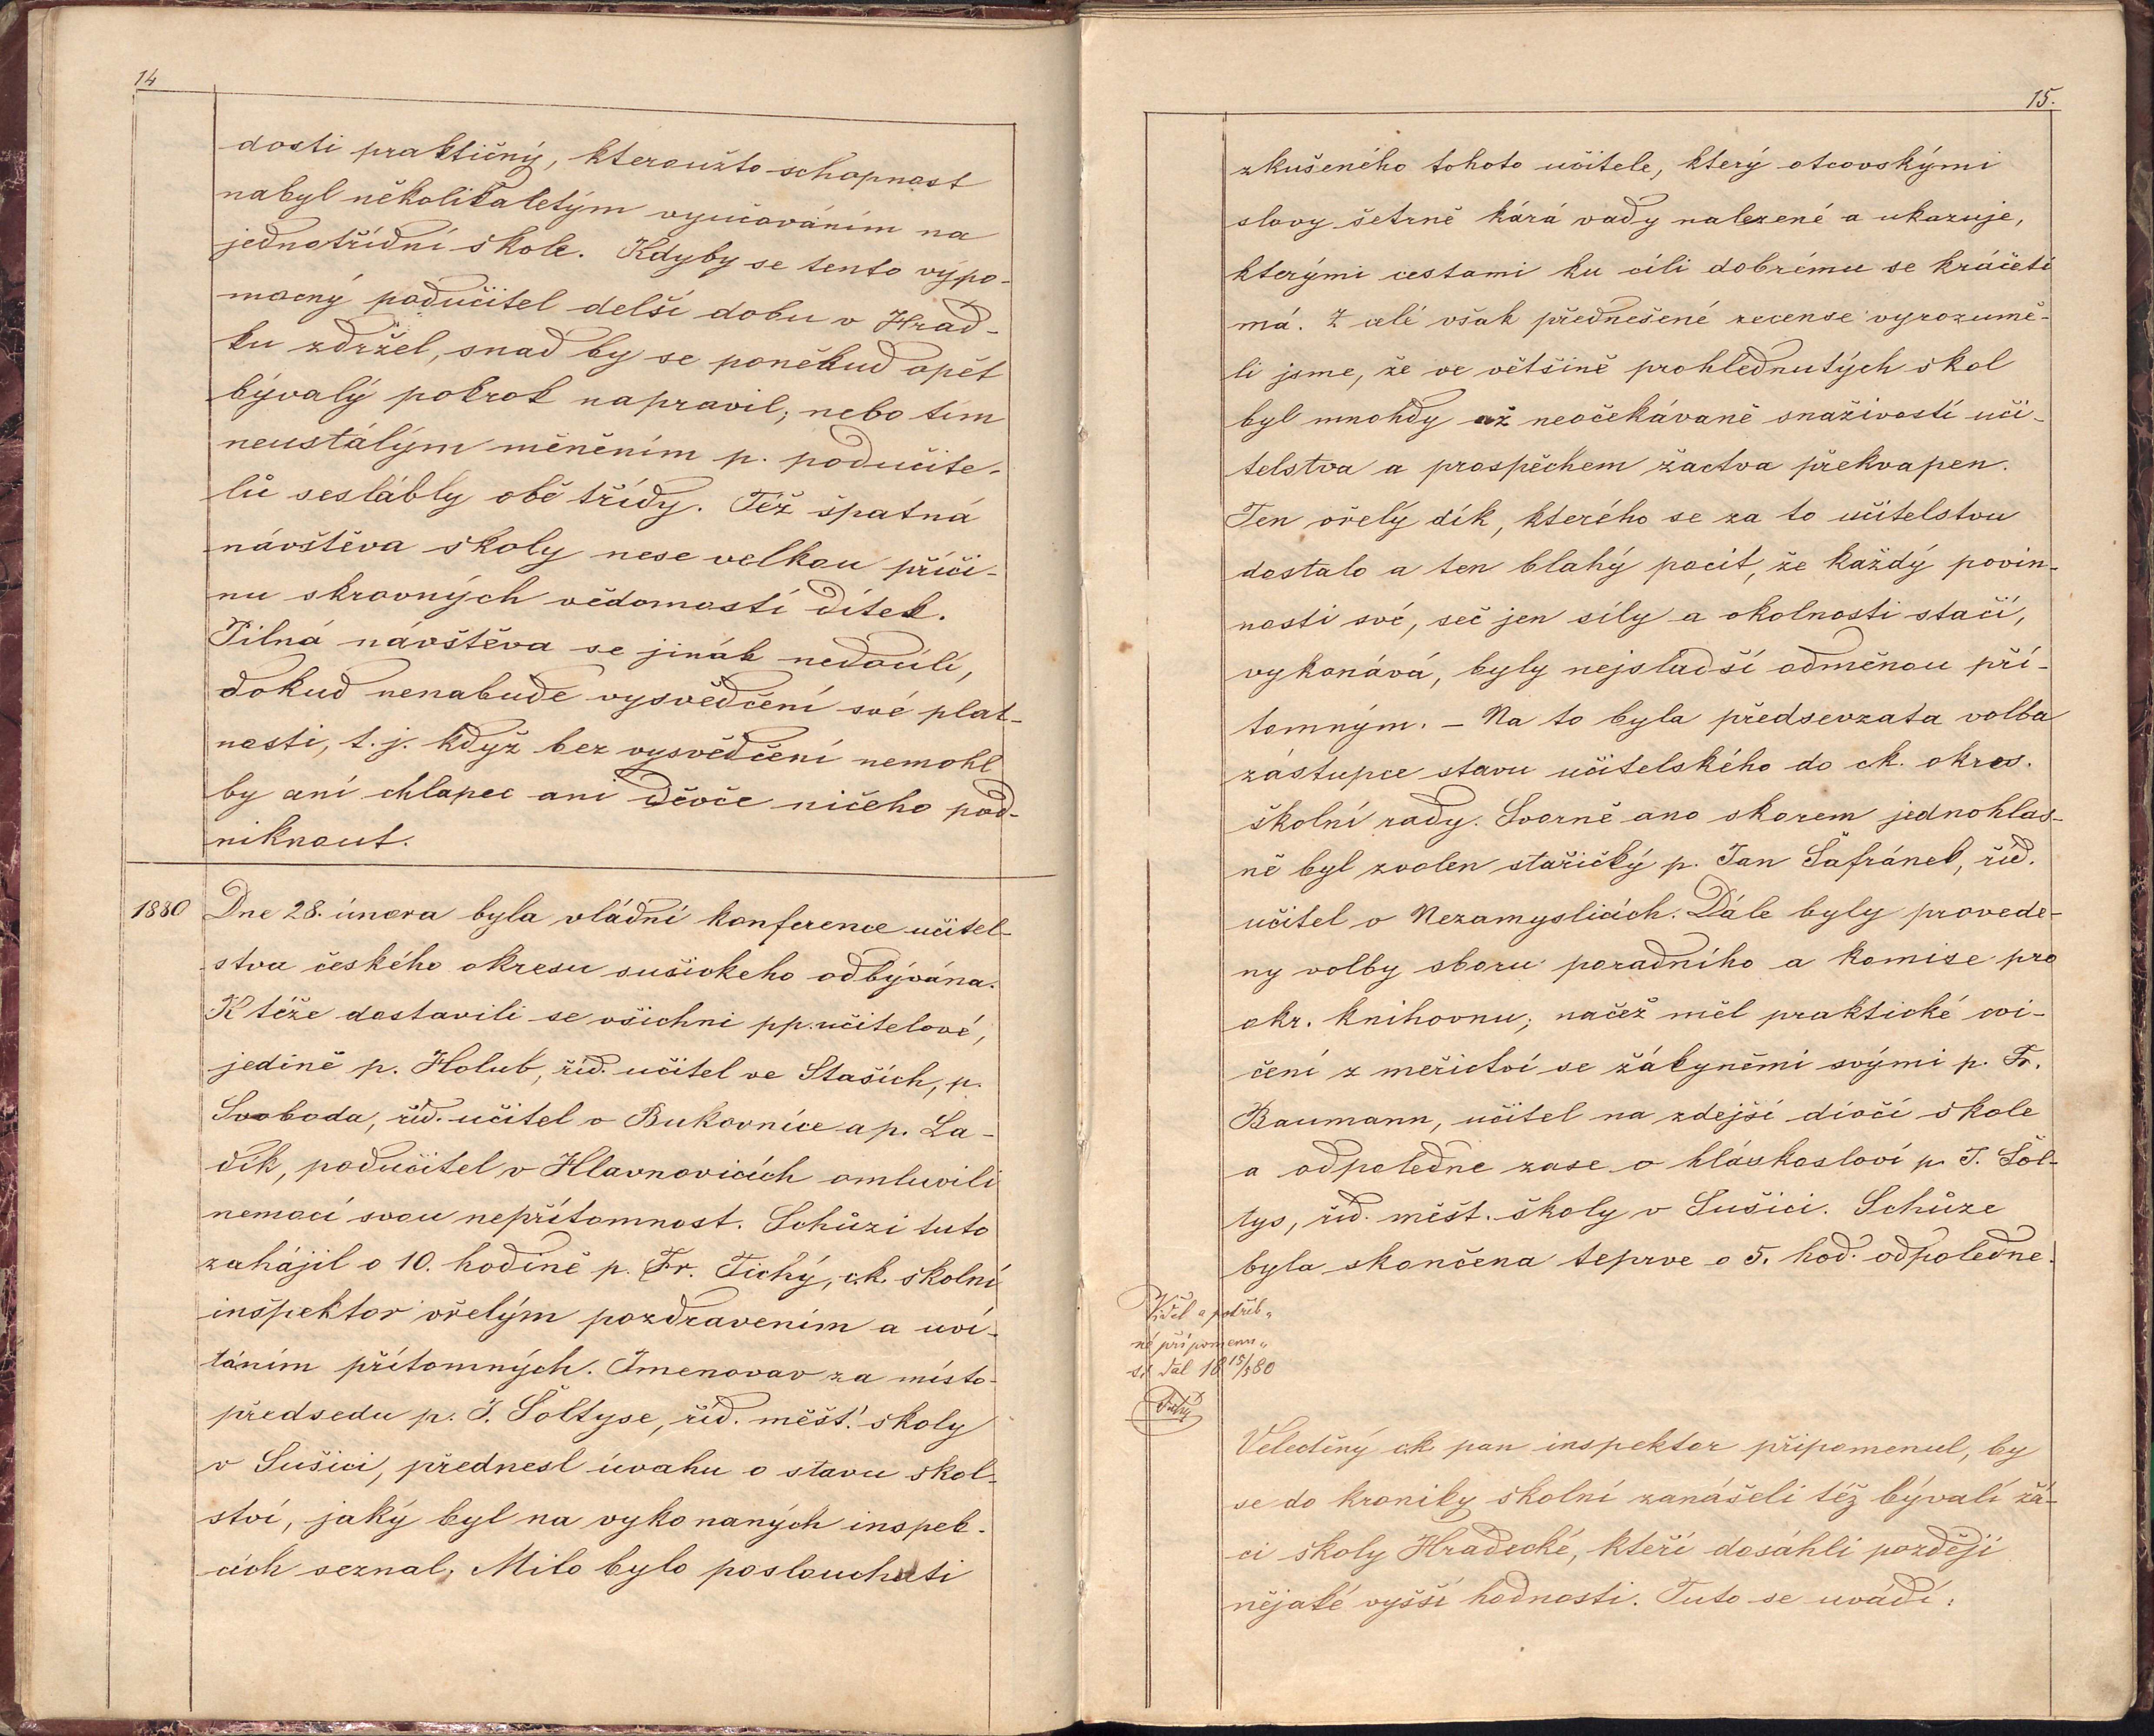 14
dosti praktičný, kteroužto schopnost
nabyl několikaletým vyučováním na
jednotřídní škole. Kdyby se tento výpo-
mocný podučitel delší dobu v Hrad-
ku zdržel, snad by se poněkud opět
bývalý pokrok napravil; nebo tím
neustálým měněním p. podučite-
lů seslábly obě třídy. Též špatná
návštěva školy nese velkou příči-
nu skrovných vědomostí dítek.
Pilná návštěva se jinák nedocílí,
dokud nenabude vysvědčení své plat-
nosti, t. j. když bez vysvědčení nemohl
by aní chlapec ani děvče ničeho pod-
niknout.
1880 Dne 28. února byla vládní konference učitel-
stva českého okresu sušického odbývána.
K téže dostavili se všichni pp. učitelové,
jedině p. Holub, říd. učitel ve Staších, p.
Svoboda, říd. učitel v Bukovníce a p. La-
dík, podučitel v Hlavnovicích omluvili
nemocí svou nepřítomnost. Schůzi tuto
zahájil o 10. hodině p. Fr. Tichý, c.k. školní
inšpektor vřelým pozdravením a uví-
táním přítomných. Jmenovav za místo-
předsedu p. J. Šoltyse, říd. měšť. školy
v Sušici, přednesl úvahu o stavu škol-
ství, jaký byl na vykonaných inspek-
cích seznal. Milo bylo poslouchati
15.
zkušeného tohoto učitele, který otcovskými
slovy šetrně kárá vady nalezené a ukazuje,
kterými cestami ku cíli dobrému se kráčeti
má. Z celé však přednešené recense vyrozumě-
li jsme, že ve většině prohlednutých škol
byl mnohdy až neočekávaně snaživostí uči-
telstva a prospěchem žactva překvapen.
Ten vřelý dík, kterého se za to učitelstvu
dostalo a ten blahý pocit, že každý povin-
nosti své, seč jen síly a okolnosti stačí,
vykonává, byly nejsladší odměnou pří-
tomným. – Na to byla předsevzata volba
zástupce stavu učitelského do ck. okres.
školní rady. Svorně ano skorem jednohlas-
ně byl zvolen stařičký p. Jan Šafránek, říd.
učitel v Nezamyslicích. Dále byly provede-
ny volby sboru poradního a komise pro
okr. knihovnu; načež měl praktické cvi-
čení z měřictví se žákyněmi svými p. Fr.
Baumann, učitel na zdejší dívčí škole
a odpoledne zase v hláskosloví p. J. Šol-
tys, říd. měšt. školy v Sušici. Schůze
byla skončena teprve o 5. hod. odpoledne.
Viděl a potřeb-
né připomenu-
tí dal 18 15/5 80
Tichý
Veleděný c.k. pan inspektor připomenul, by
se do kroniky školní zanášeli též bývalí žá-
ci školy Hradecké, kteří dosáhli později
nějaké vyšší hodnosti. Tuto se uvádí: